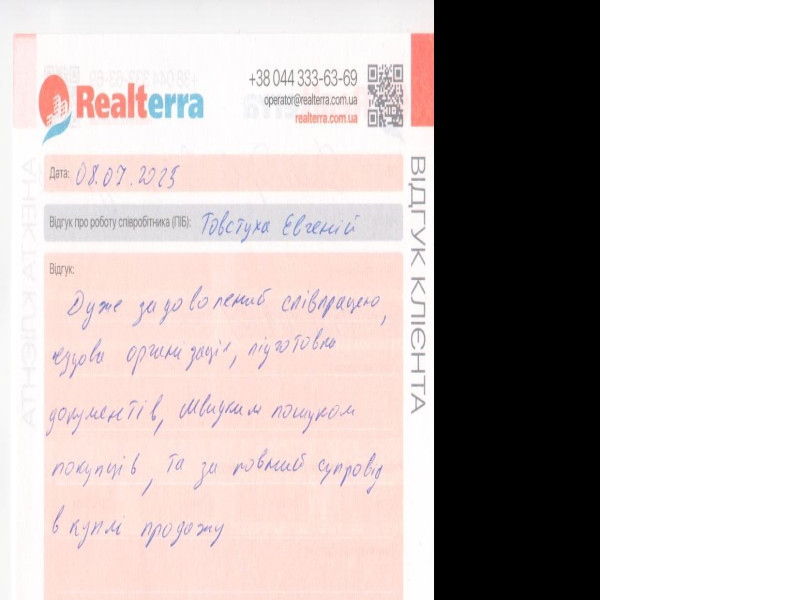 Realterra
+38 044 333-63-69
operator@realterra.com.ua
realterra.com.ua
Дата: 08.07.2025
Відгук про роботу співробітника (ПІБ): Товстуха Євгеній
Відгук:
Дуже задоволений співпрацею,
чудова організація, підготовка
документів, швидким пошуком
покупців, та за повний супровід
в куплі продажу
ВІДГУК КЛІЄНТА